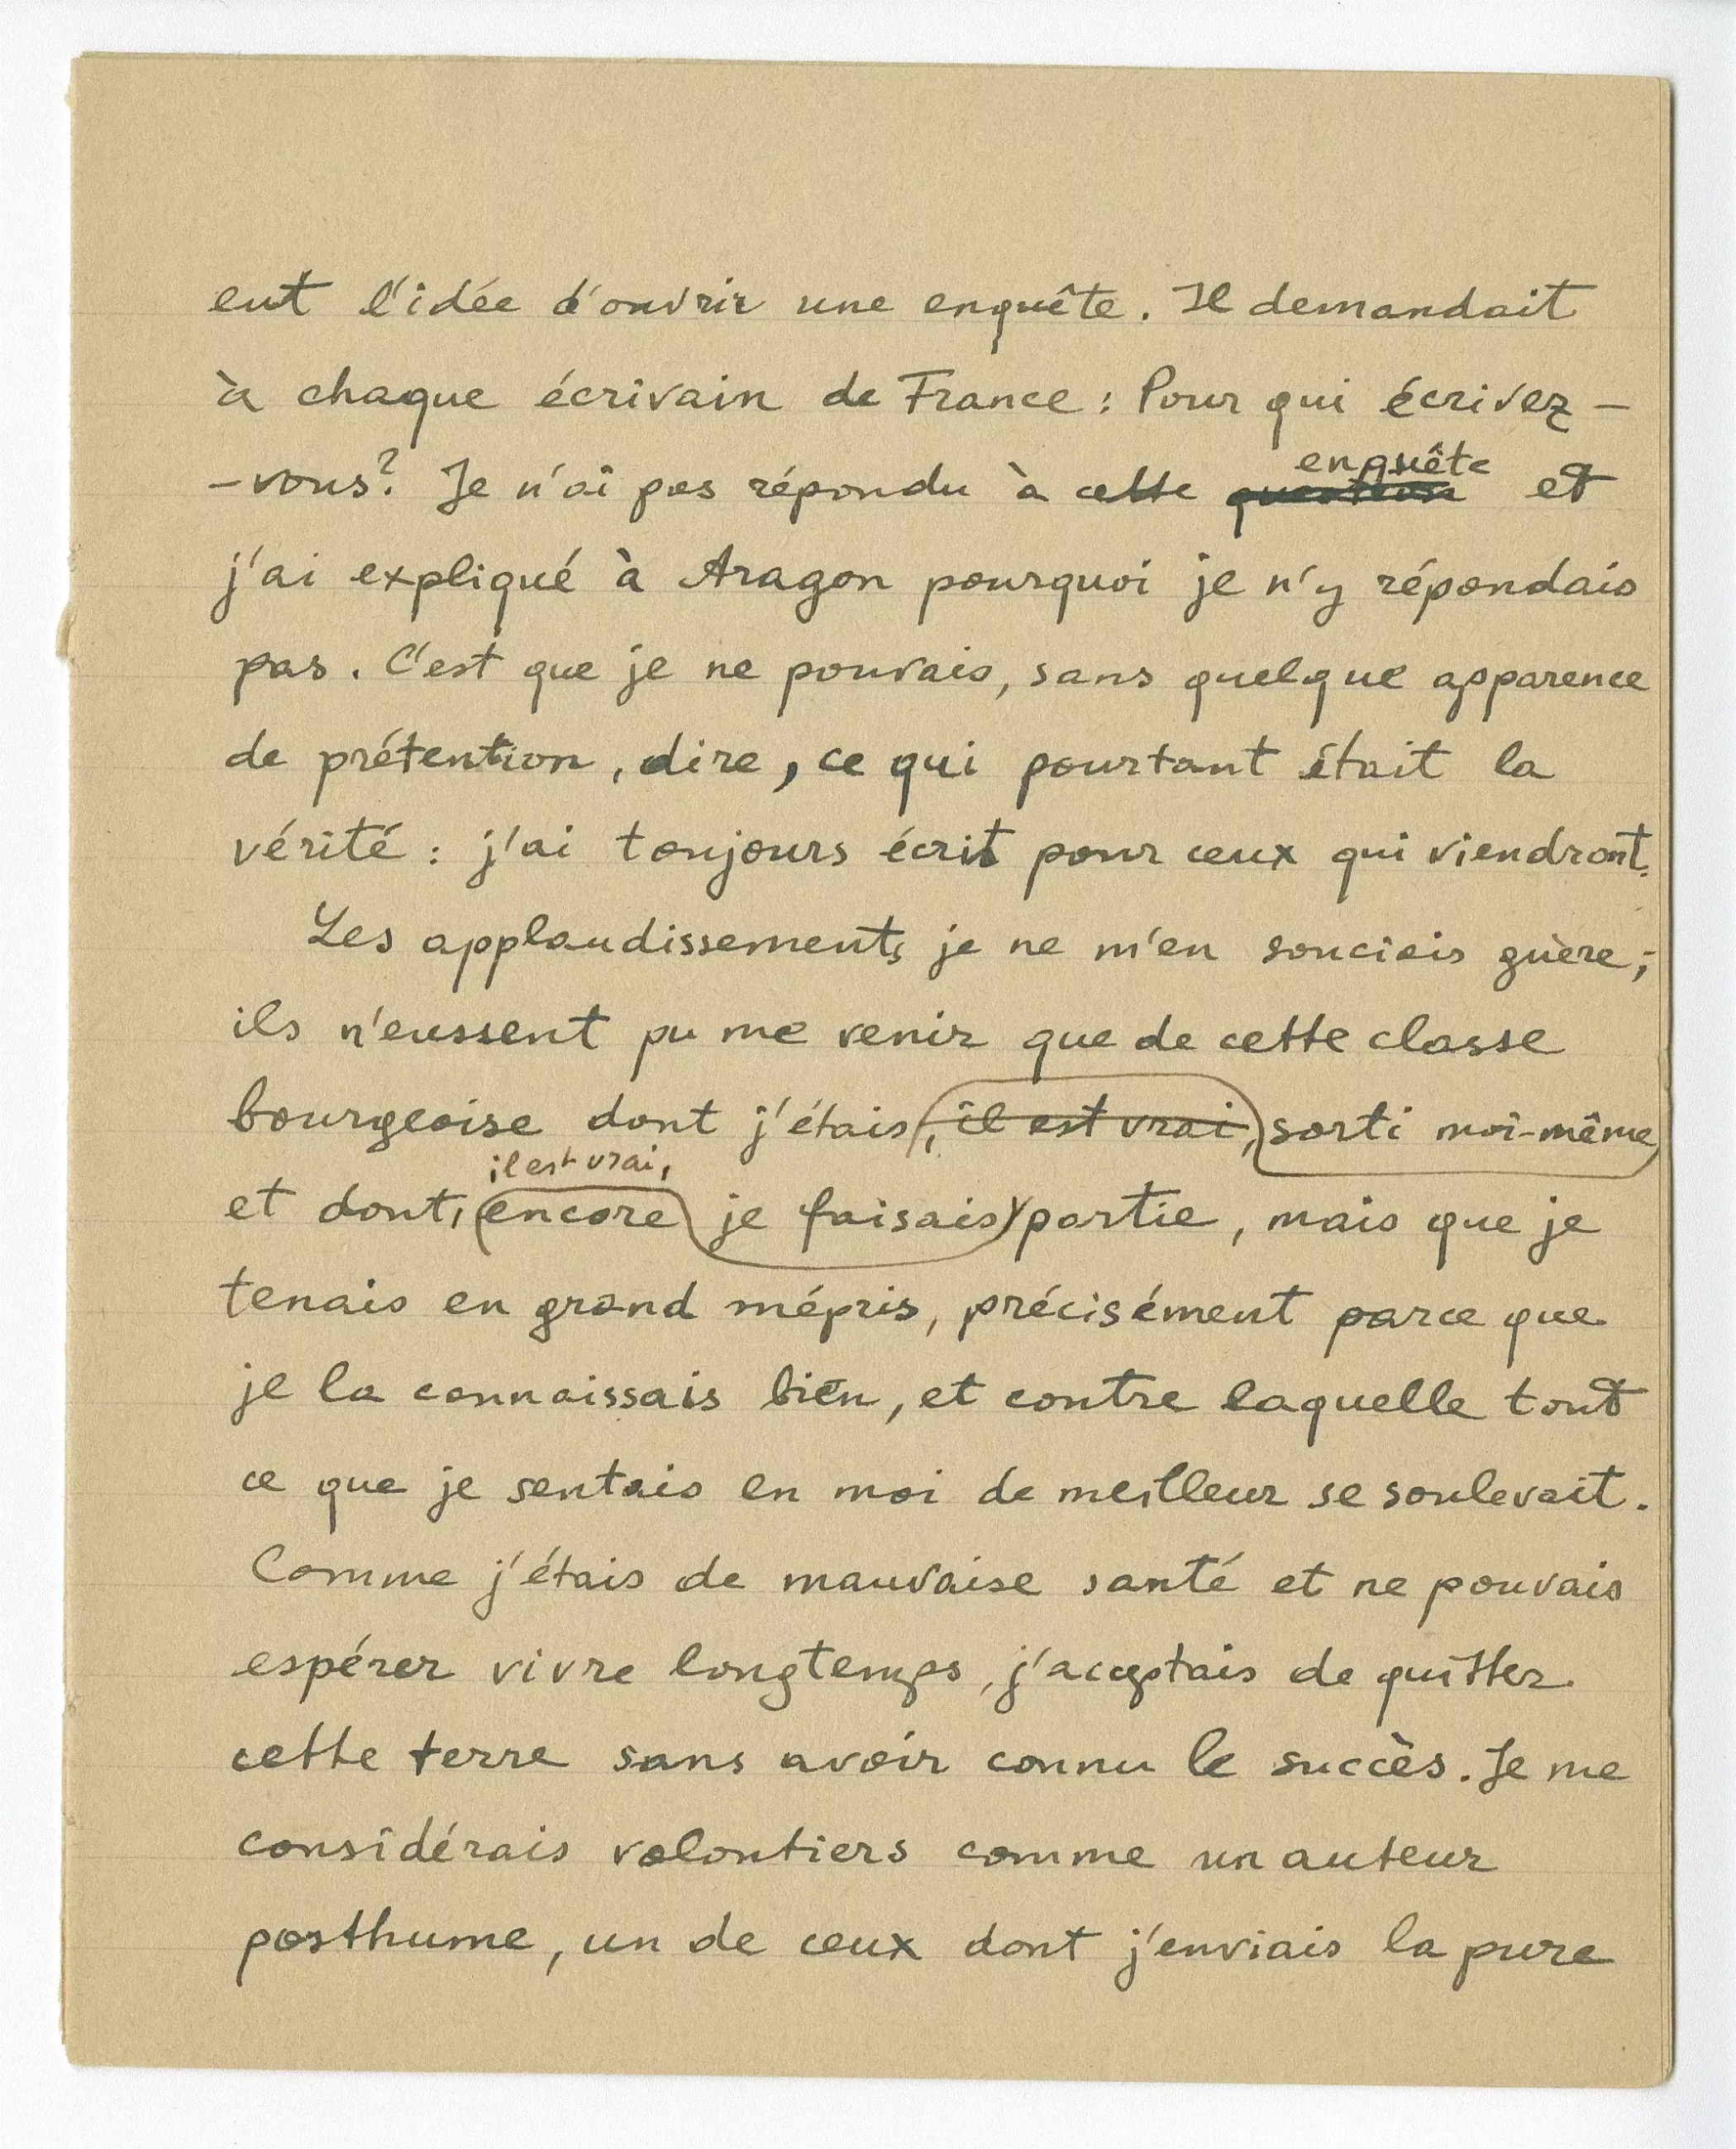 eut l'idée d'ouvrir une enquête. Il demandait
à chaque écrivain de France : Pour qui écrivez -
- vous ? Je n'ai pas répondu à cette question enquête et
j'ai expliqué à Aragon pourquoi je n'y répondais
pas. C'est que je ne pouvais, sans quelque apparence
de prétention, dire, ce qui pourtant était la
vérité : j'ai toujours écrit pour ceux qui viendront.
Les applaudissements, je ne m'en souciais guère ;
ils n'eussent pu me venir que de cette classe
bourgeoise dont j'étais, il est vrai, sorti moi-même
il est vrai,
et dont, encore je faisais partie, mais que je
tenais en grand mépris, précisément parce que
je la connaissais bien, et contre laquelle tout
ce que je sentais en moi de meilleur se soulevait.
Comme j'étais de mauvaise santé et ne pouvais
espérer vivre longtemps, j'acceptais de quitter
cette terre sans avoir connu le succès. Je me
considérais volontiers comme un auteur
posthume, un de ceux dont j'enviais la pure